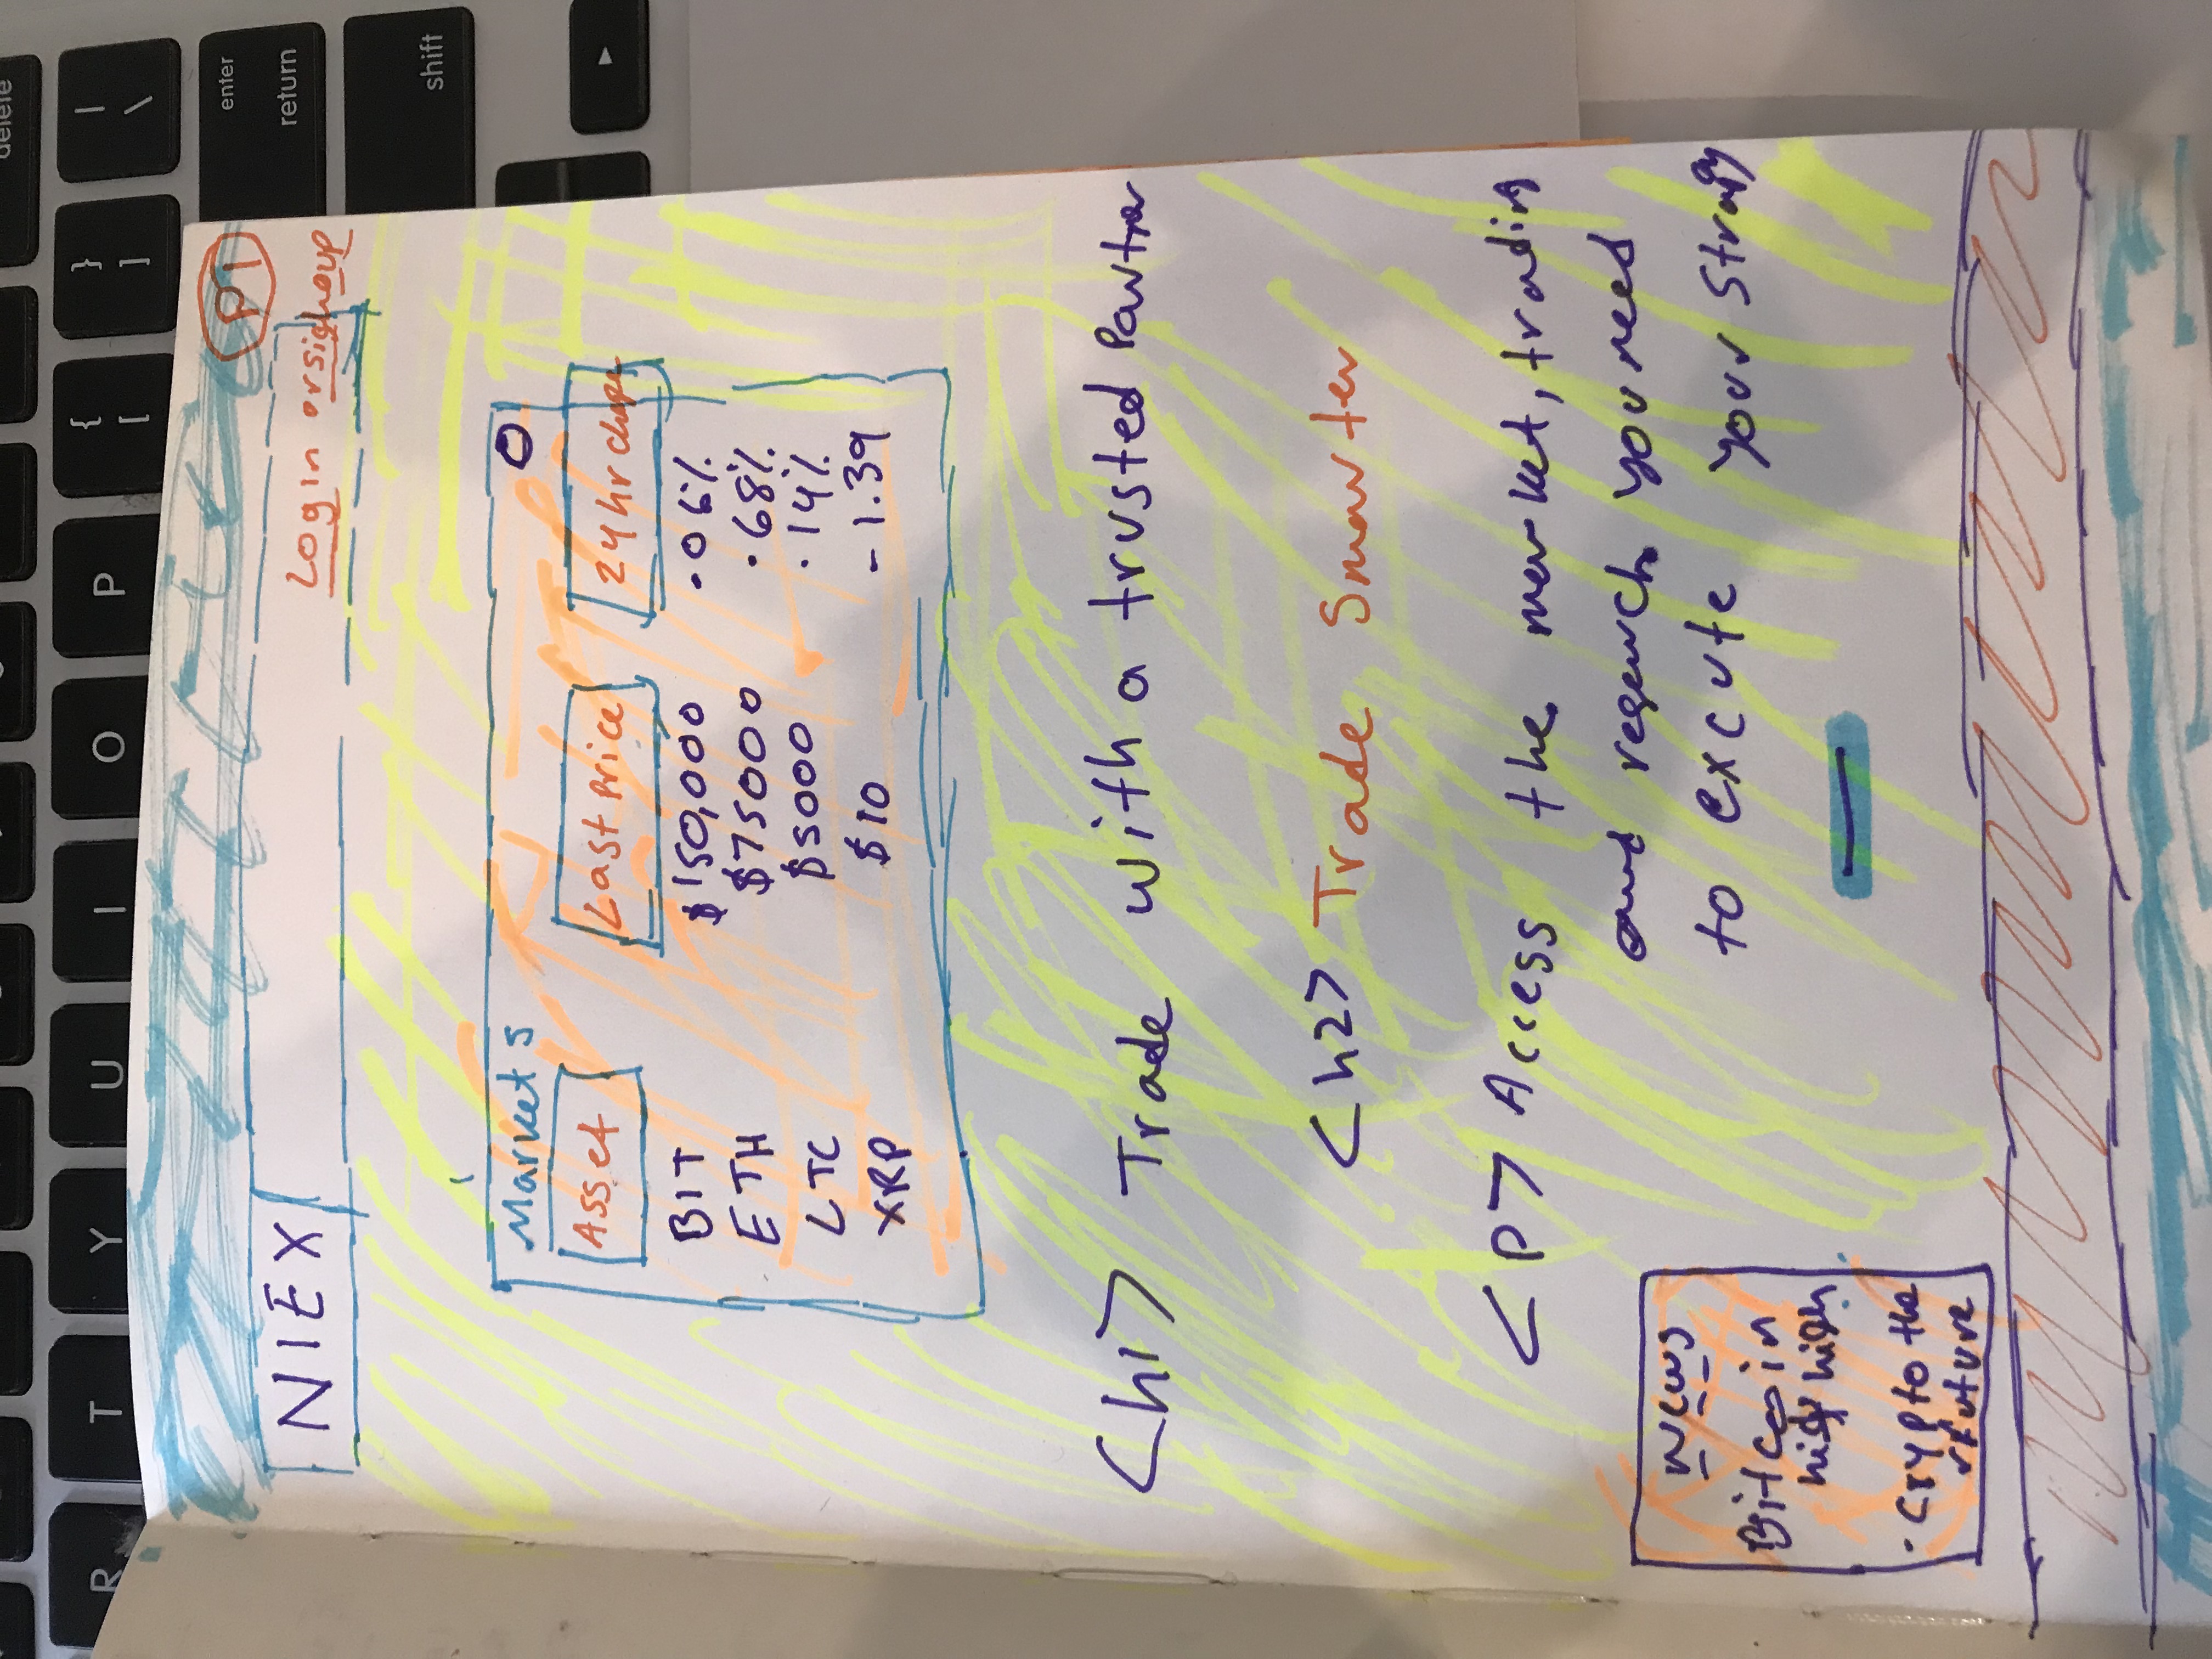 delete
R T Y U I O P { [ } ] | \
enter
return
shift
P1
NIEX
Login or signoup
Markets O
Asset Last price 24hr
BIT $150,000 .06%
ETH $75000 .68%
LTC $5000 .14%
XRP $10 -1.39
<h1> Trade with a trusted Partner
<h2> Trade Smarter
<p> Access the market, trading
and research you need
to excute your
News
Bitcoin
high
- Crypto the
future